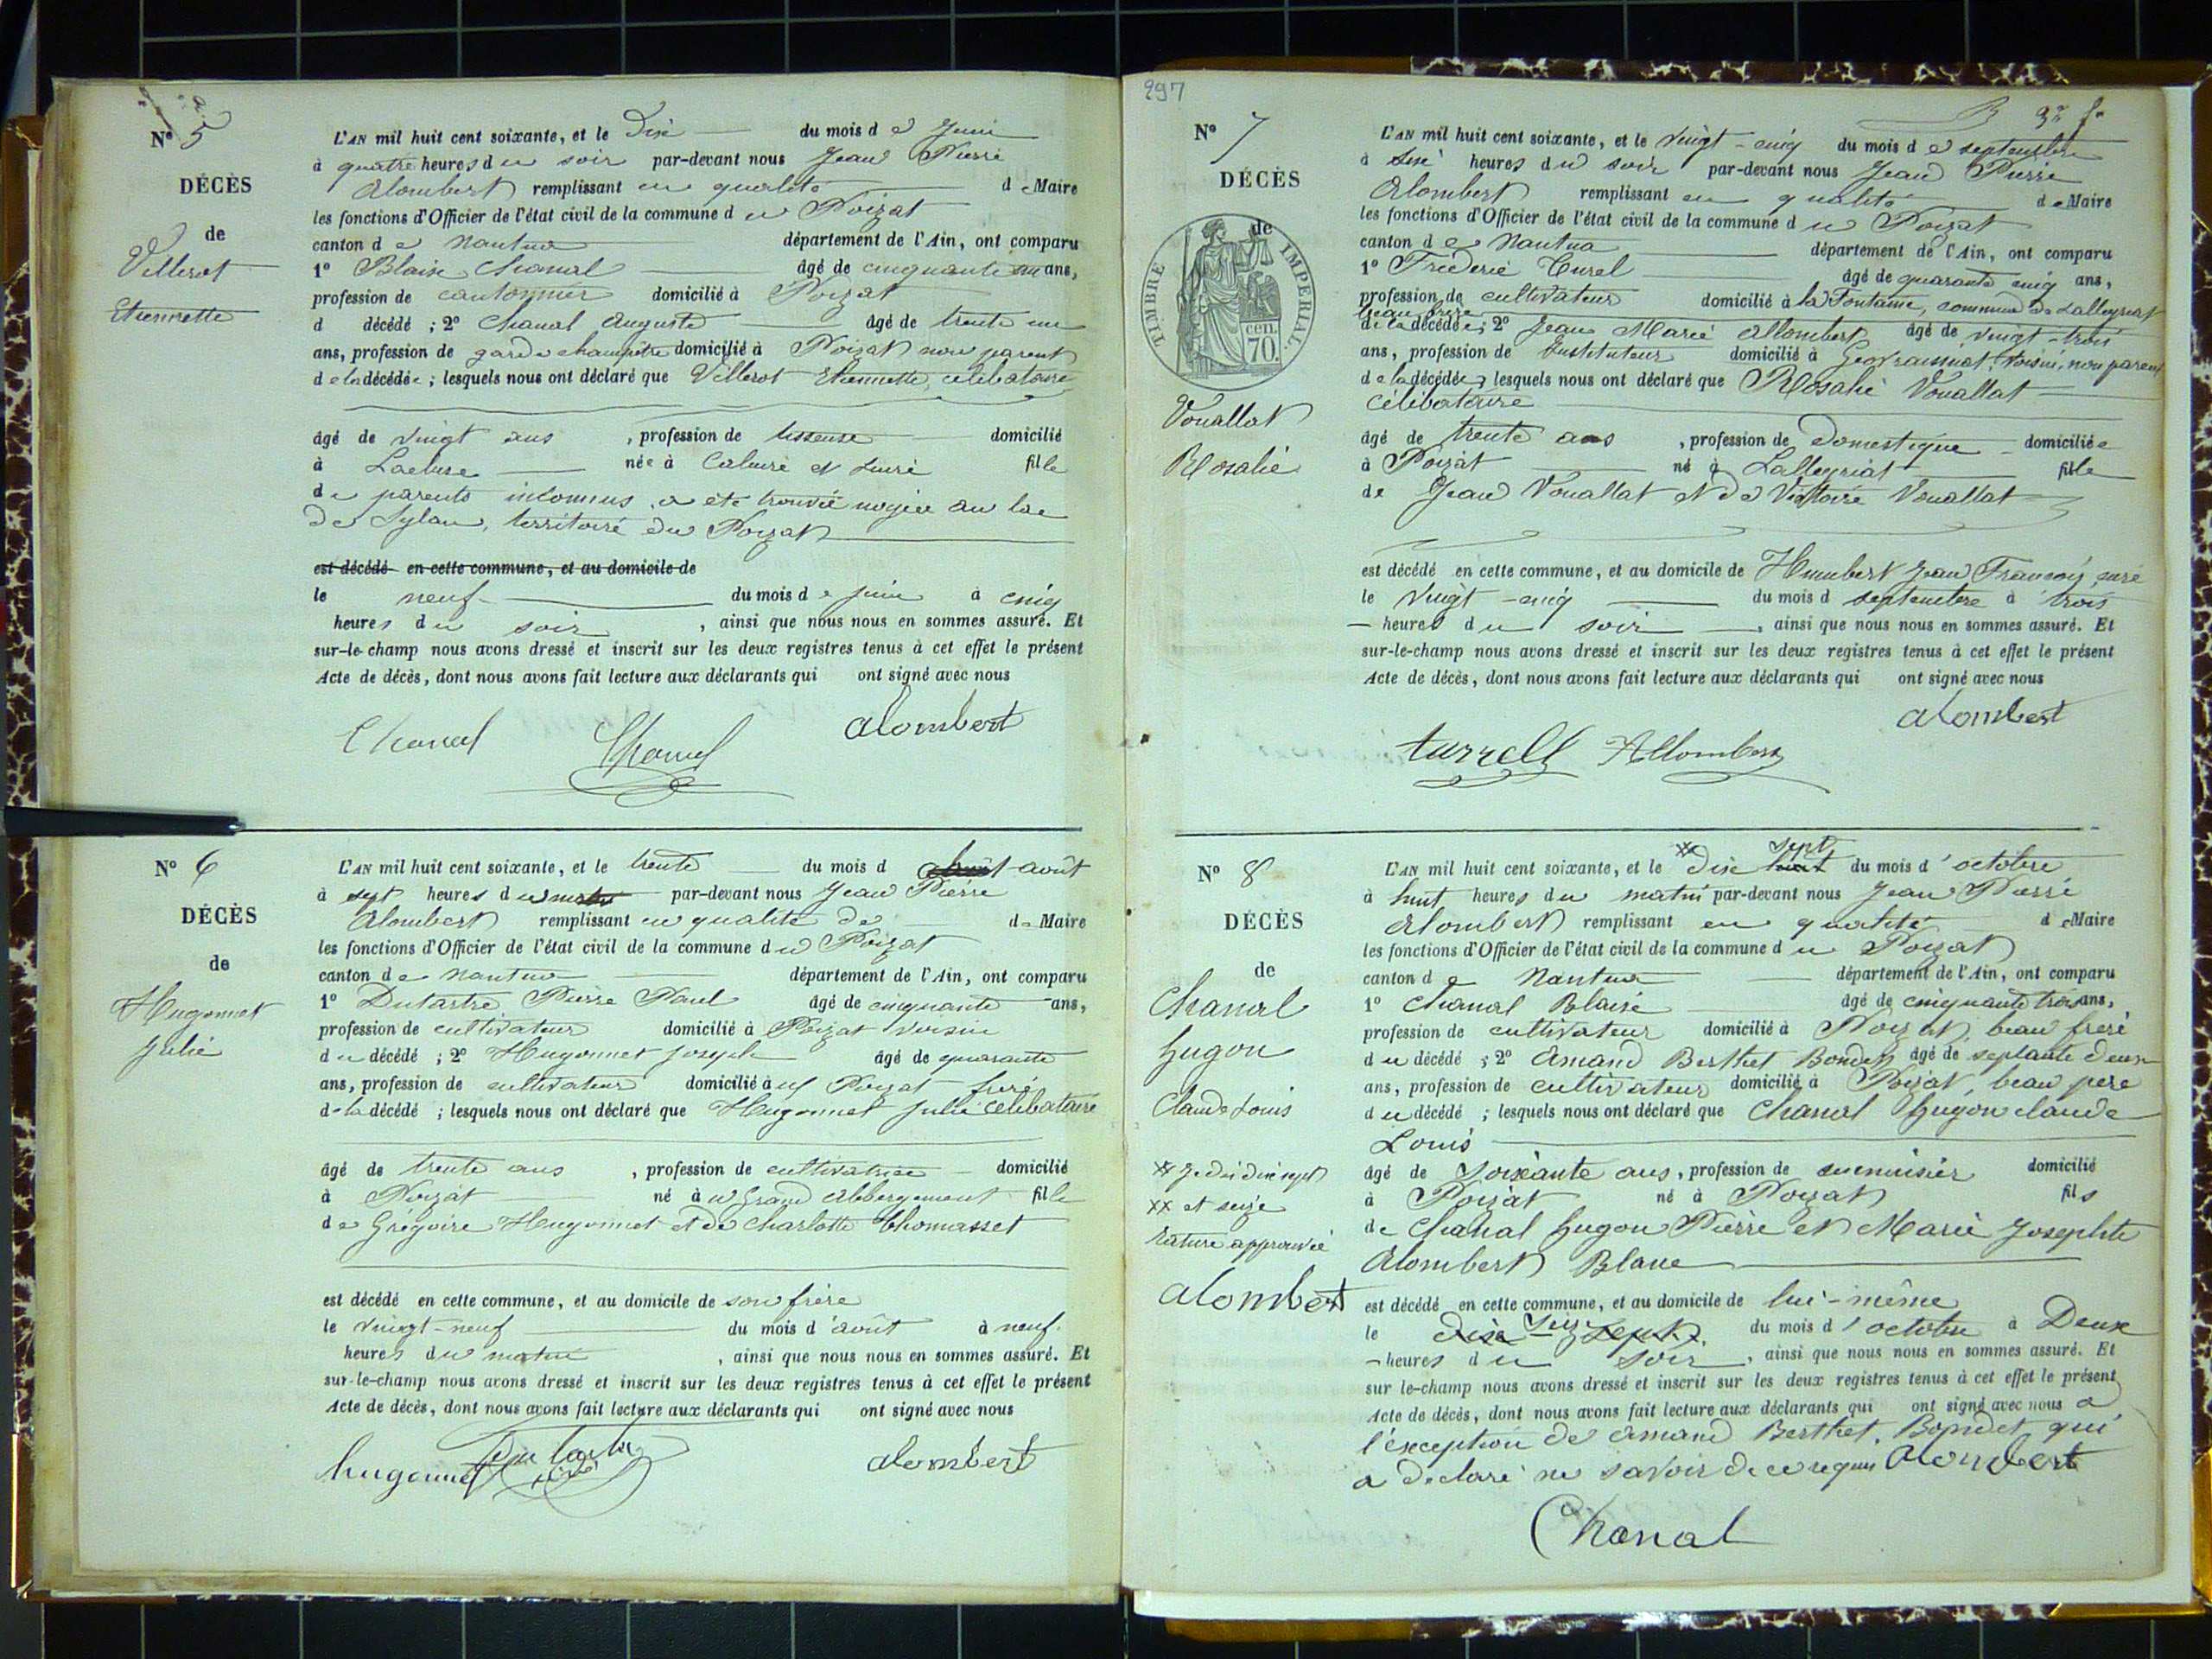 N° 5
DÉCÈS
de
Villerot
Etiennette
L'AN mil huit cent soixante, et le Dix du mois de Juin
à quatre heures du soir par-devant nous Jean Pierre
Alombert remplissant en qualité de Maire
les fonctions d'Officier de l'état civil de la commune du Poizat
canton de Nantua département de l'Ain, ont comparu
1° Blaise Chanal âgé de cinquante ans,
profession de cantonnier domicilié à Poizat
d décédé ; 2° Chanal Auguste âgé de trente un
ans, profession de garde champêtre domicilié à Poizat non parent
de la décédée ; lesquels nous ont déclaré que Villerot Etiennette, célibataire
âgé de vingt ans , profession de tisseuse domicilié
à née à Caluire et Cuire fille
de parents inconnus, a été trouvée noyée au lac
de Sylan, territoire du Poizat
est décédé en cette commune, et au domicile de
le neuf du mois de juin à cinq
heures du soir , ainsi que nous nous en sommes assuré. Et
sur-le-champ nous avons dressé et inscrit sur les deux registres tenus à cet effet le présent
Acte de décès, dont nous avons fait lecture aux déclarants qui ont signé avec nous
Chanal Chanal alombert
N° 6
DÉCÈS
de
Hugonnet
Julie
L'AN mil huit cent soixante, et le trente du mois d août
à sept heures du matin par-devant nous Jean Pierre
Alombert remplissant en qualité de de Maire
les fonctions d'Officier de l'état civil de la commune du Poizat
canton de Nantua département de l'Ain, ont comparu
1° Dutartre Pierre Paul âgé de cinquante ans,
profession de cultivateur domicilié à Poizat voisin
du décédé ; 2° Hugonnet Joseph âgé de quarante
ans, profession de cultivateur domicilié au Poizat frère
de la décédé ; lesquels nous ont déclaré que Hugonnet Julie célibataire
âgé de trente ans , profession de cultivatrice domicilié
à Poizat né au Grand Abbergement fille
de Grégoire Hugonnet et de Charlotte Thomasset
est décédé en cette commune, et au domicile de son frère
le vingt-neuf du mois d'août à neuf
heures du matin , ainsi que nous nous en sommes assuré. Et
sur-le-champ nous avons dressé et inscrit sur les deux registres tenus à cet effet le présent
Acte de décès, dont nous avons fait lecture aux déclarants qui ont signé avec nous
hugonnet alombert
297
N° 7
DÉCÈS
de
TIMBRE IMPERIAL.
cen.
70.
Vouallat
Rosalie
L'AN mil huit cent soixante, et le vingt-cinq du mois de septembre
à six heures du soir par-devant nous Jean Pierre
Alombert remplissant en qualité de Maire
les fonctions d'Officier de l'état civil de la commune du Poizat
canton de Nantua département de l'Ain, ont comparu
1° Frédéric Turel âgé de quarante cinq ans,
profession de cultivateur domicilié à la Fontaine, commune de Lalleyriat
beau frère
de la décédée; 2° Jean Marie Allombert âgé de vingt-trois
ans, profession de Instituteur domicilié à Geovraissiat, voisin, non parent
de la décédée, lesquels nous ont déclaré que Rosalie Vouallat
célibataire
âgé de trente ans , profession de Domestique domiciliée
à Poizat né à Lalleyriat fille
de Jean Vouallat et de Victoire Vouallat
est décédé en cette commune, et au domicile de Humbert Jean François, curé
le vingt-cinq du mois d septembre à trois
heures du soir , ainsi que nous nous en sommes assuré. Et
sur-le-champ nous avons dressé et inscrit sur les deux registres tenus à cet effet le présent
Acte de décès, dont nous avons fait lecture aux déclarants qui ont signé avec nous
alombert
turrell Allombert
N° 8
DÉCÈS
de
Chanal
Gugon
Claude Louis
xx et seize
rature approuvée
alombert
sept
L'AN mil huit cent soixante, et le Dix huit du mois d'octobre
à huit heures du matin par-devant nous Jean Pierre
Alombert remplissant en qualité de Maire
les fonctions d'Officier de l'état civil de la commune du Poizat
canton de Nantua département de l'Ain, ont comparu
1° Chanal Blaise âgé de cinquante trois ans,
profession de cultivateur domicilié à Poizat, beau frère
du décédé ; 2° Amand Berthet Bondet âgé de septante deux
ans, profession de cultivateur domicilié à Poizat, beau père
du décédé ; lesquels nous ont déclaré que Chanal Gugon Claude
Louis
âgé de soixante ans, profession de menuisier domicilié
à Poizat né à Poizat fils
de Chanal Gugon Pierre et Marie Josephte
Alombert Blanc
est décédé en cette commune, et au domicile de lui-même
le dix sept du mois d'octobre à Deux
heures du soir , ainsi que nous nous en sommes assuré. Et
sur le-champ nous avons dressé et inscrit sur les deux registres tenus à cet effet le présent
Acte de décès, dont nous avons fait lecture aux déclarants qui ont signé avec nous a
l'exception de Amand Berthet Bondet qui
a déclaré ne savoir de ce requis alombert
Chanal